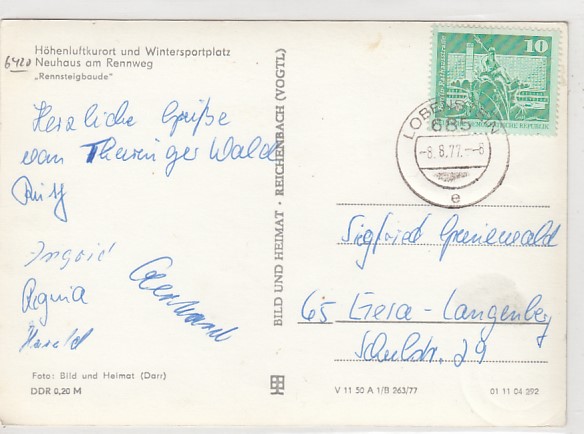 6420
Höhenluftkurort und Wintersportplatz
Neuhaus am Rennweg
„Rennsteigbaude“
Herzliche Grüße
vom Thüringer Wald
Ingrid
Regina
Harald
Foto: Bild und Heimat (Darr)
DDR 0,20 M
BILD UND HEIMAT · REICHENBACH (VOGTL)
10
LOBENSTEIN
685
-8.8.77.--8
e
Siegfried Grünewald
65 Gera-Langenberg
Schulstr. 29
V 11 50 A 1/B 263/77
01 11 04 292